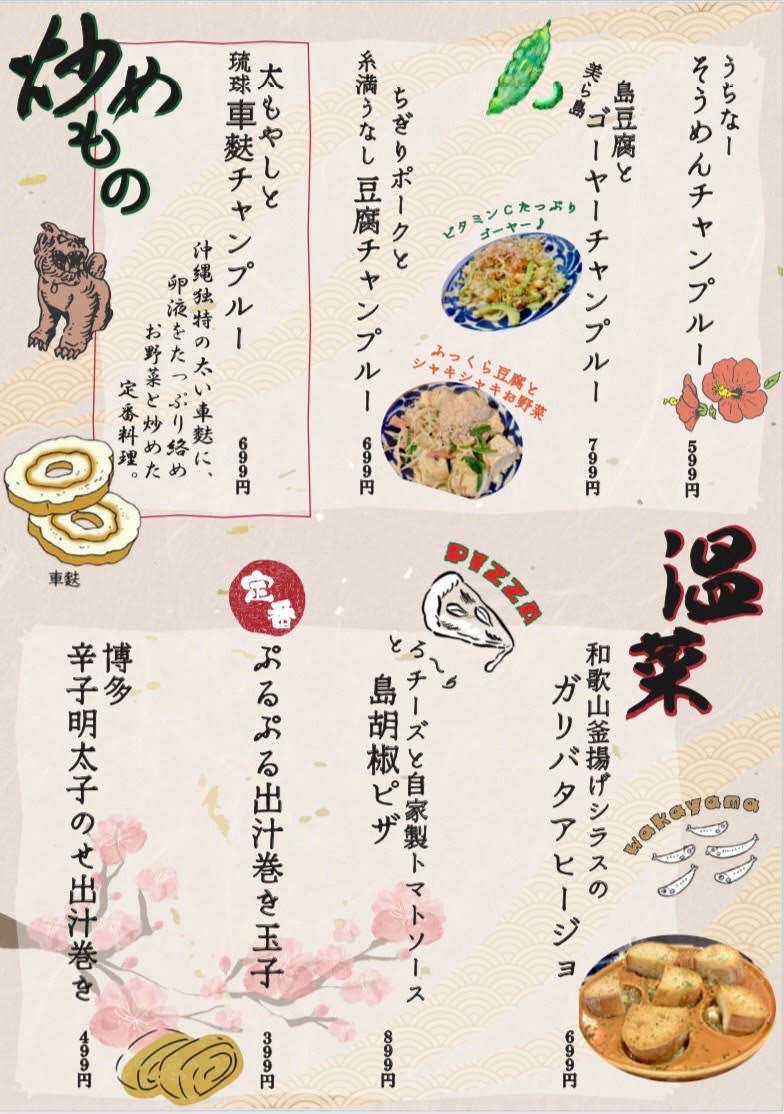 炒めもの
うちなー
そうめんチャンプルー
599円
島豆腐と
美ら島
ゴーヤーチャンプルー
799円
ビタミンCたっぷり
ゴーヤー♪
ちぎりポークと
糸満うなし豆腐チャンプルー
699円
ふっくら豆腐と
シャキシャキお野菜
太もやしと
琉球車麩チャンプルー
沖縄独特の太い車麩に、
卵液をたっぷり絡め
お野菜と炒めた
定番料理。
699円
車麩
温菜
和歌山釜揚げシラスの
ガリバタアヒージョ
699円
wakayama
PIZZA
とろ〜りチーズと自家製トマトソース
島胡椒ピザ
899円
定番
ぷるぷる出汁巻き玉子
399円
博多
辛子明太子のせ出汁巻き
499円